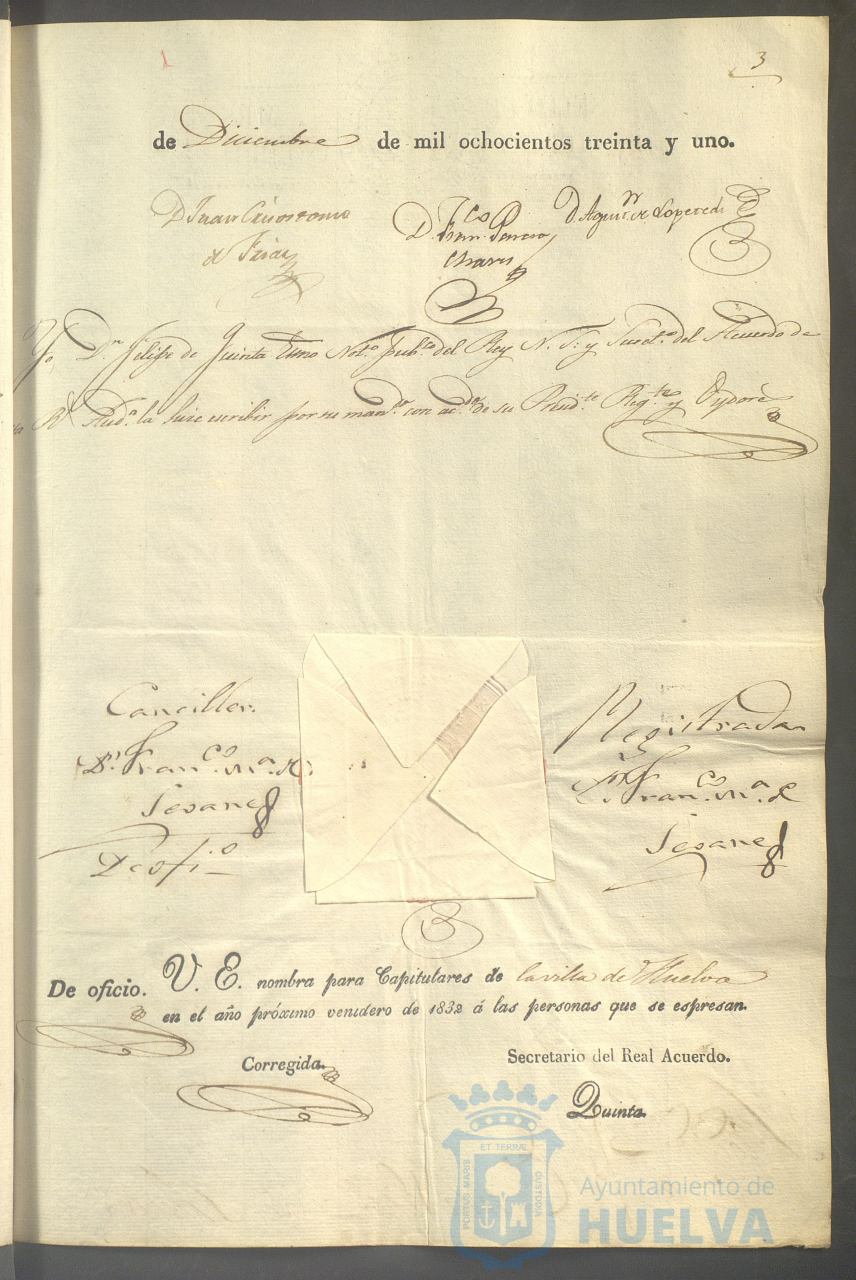 3
de Diciembre de mil ochocientos treinta y uno.
D Juan Crisostomo
de Frias
D. Fran.co
Chaves
D Agus.n de Loperedi
Yo D.n Felipe de Quinta Not.o pub.co del Rey N. S. y Secret.o del Acuerdo de
R.l Aud.a la hice escribir por su man.do con ac.do de su Presid.te Reg.te y Oydores
Canciller.
D.n Fran.co M.a de
Seoane
De ofi.o
Registrada
D.n Fran.co M.a de
Seoane
De oficio. V. E. nombra para Capitulares de la villa de Huelva
en el año próximo venidero de 1832 á las personas que se espresan.
Corregida.
Secretario del Real Acuerdo.
Quinta.
PORTUS MARIS ET TERRÆ CUSTODIA
Ayuntamiento de
HUELVA